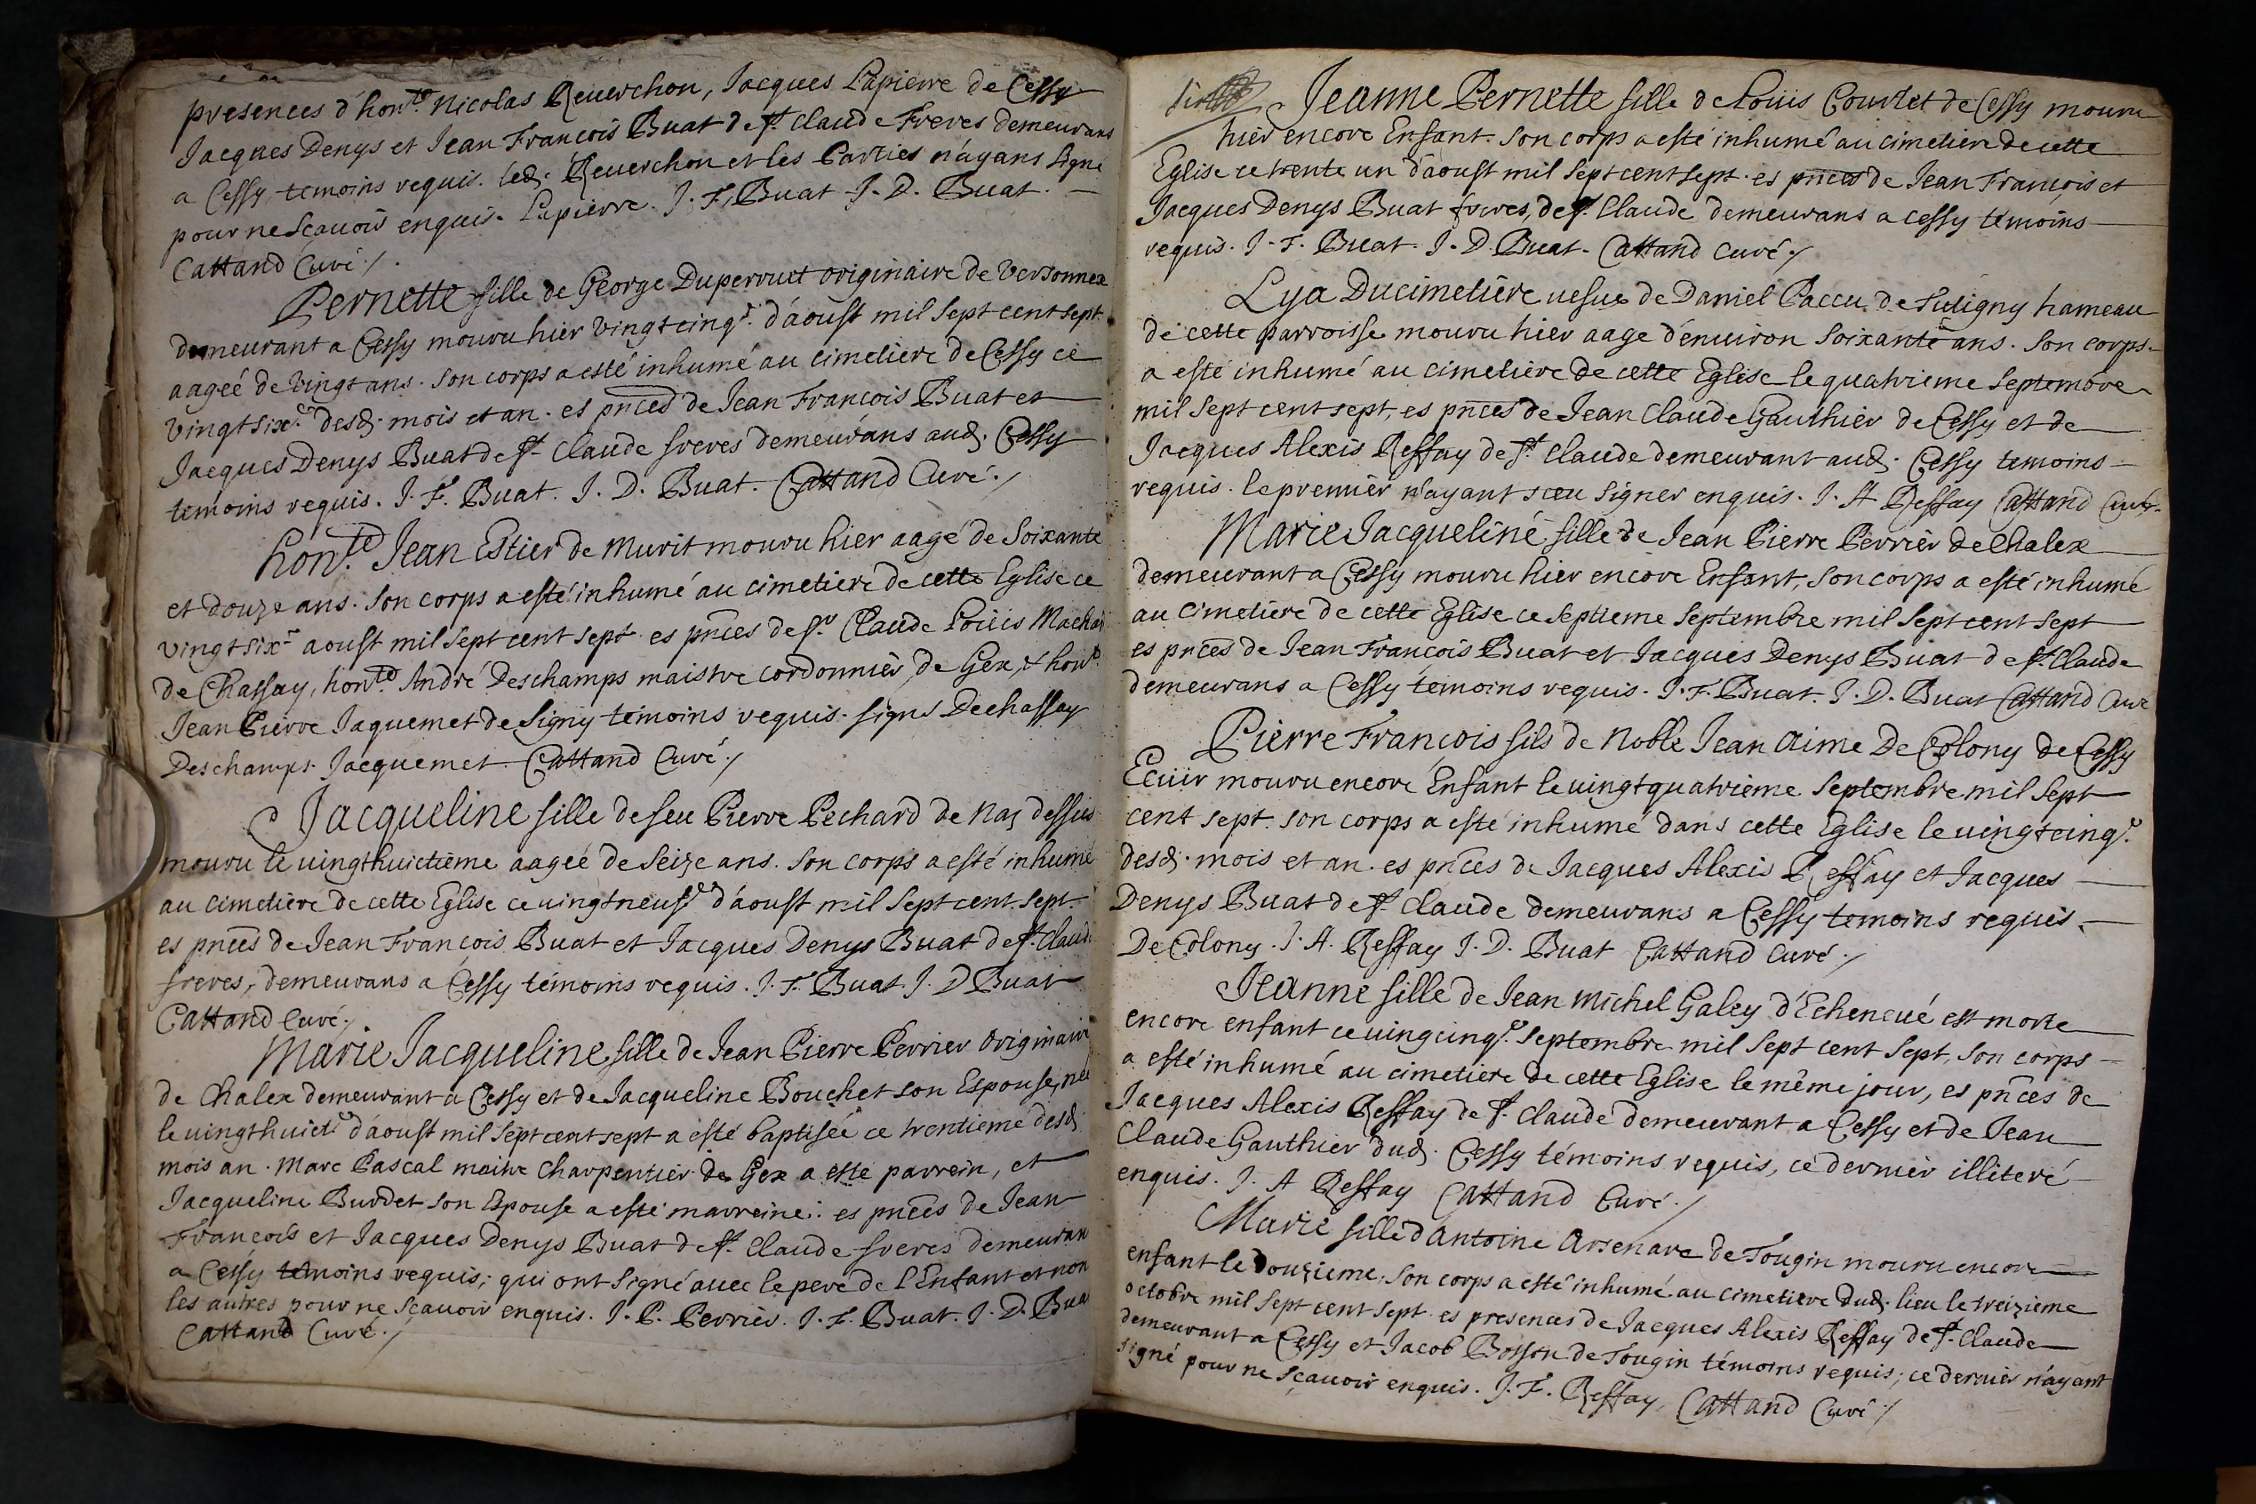 presences d'hon.te Nicolas Reuerchon, Jacques Lapierre de Cessy
Jacques Denys et Jean François Buat de st. Claude Freres demeurans
a Cessy temoins requis. led. Reuerchon et les Parties n'ayans signé
pour ne scauoir enquis. Lapierre. J. F. Buat J. D. Buat.
Cattand Curé./.
Pernette fille de George Duperruit originaire de Versonnex
demeurant a Cessy mouru hier vingtcinq.e d'aoust mil sept cent sept
aageé de vingt ans. son corps a esté inhumé au cimetiere de Cessy ce
vingtsix.e desd. mois et an. es pnces de Jean François Buat et
Jacques Denys Buat de st. Claude freres demeurans aud. Cessy
temoins requis. J. F. Buat. J. D. Buat. Cattand Curé./
hon.te Jean Estier de Murit mouru hier aagé de Soixante
et douze ans. son corps a esté inhumé au cimetiere de cette Eglise ce
vingtsix.e aoust mil sept cent sept es pnces de sr. Claude Louis
de Chassay, hon.te André Deschamps maistre cordonnier de Gex, & hon.te
Jean Pierre Jaquemet de Signy témoins requis. signs Dechassay
Deschamps. Jacquemet. Cattand Curé./
Jacqueline fille de feu Pierre Pechard de Naz dessus
mouru le uingthuictième aageé de seize ans. son corps a esté inhumé
au cimetière de cette Eglise ce uingtneuf.e d'aoust mil sept cent sept
es pnces de Jean François Buat et Jacques Denys Buat de st. Claude
freres, demeurans a Cessy témoins requis. J. F. Buat J. D Buat
Cattand Curé./
Marie Jacqueline fille de Jean Pierre Perrier Originaire
de Chalex demeurant a Cessy et de Jacqueline Bouchet son Espouse, née
le uingthuict.e d'aoust mil sept cent sept a esté baptisée ce trentieme desd.
mois an. Marc Pascal maitre charpentier de Gex a esté parrein, et
Jacqueline Burdet son Espouse a esté marreine. es pnces de Jean
François et Jacques Denys Buat de st. Claude freres demeurans
a Cessy temoins requis; qui ont signé auec le pere de l'Enfant et non
les autres pour ne scauoir enquis. J. P. Perrier. J. F. Buat. J. D. Buat
Cattand Curé./
Jeanne Pernette fille de Loüis Courtet de Cessy mouru
hier encore Enfant. son corps a esté inhumé au cimetiere de cette
Eglise ce trente un d'aoust mil sept cent sept. es pnces de Jean François et
Jacques Denys Buat freres, de st. Claude demeurans a cessy témoins
requis. J. F. Buat. J. D. Buat. Cattand Curé./
Lya Ducimetière uefue de Daniel Paccu de Sutigny hameau
de cette parroisse mouru hier aage d'enuiron soixante ans. son corps
a esté inhumé au cimetiere de cette Eglise le quatrieme septembre
mil sept cent sept, es pnces de Jean Claude Gauthier de Cessy et de
Jacques Alexis Reffay de st. Claude demeurant aud. Cessy temoins
requis. le premiér n'ayant sceu signer enquis. J. A Reffay Cattand Curé.
Marie Jacqueliné fille de Jean Pierre Perrièr de Chalex
demeurant a Cessy mouru hier encore Enfant, son corps a esté inhumé
au cimetière de cette Eglise ce septieme septembre mil sept cent sept
es pnces de Jean François Buat et Jacques Denys Buat de st. Claude
demeurans a Cessy témoins requis. J. F. Buat. J. D. Buat Cattand Curé
Pierre François fils de Noble Jean Aimé De Colony de Cessy
Ecüir mouru encore Enfant le uingtquatrième septembre mil sept
cent sept. son corps a esté inhumé dans cette Eglise le uingtcinq.e
desd. mois et an. es pnces de Jacques Alexis Reffay et Jacques
Denys Buat de st. Claude demeurans a Cessy temoins requis.
De Colony. J. A. Reffay J. D. Buat Cattand Curé./
Jeanne fille de Jean Michel Galey d'Echeneué est morte
encore enfant ce uingcinq.e septembre mil sept cent sept, son corps
a esté inhumé au cimetiere de cette Eglise le même jour, es pnces de
Jacques Alexis Reffay de st. Claude demeurant a Cessy et de Jean
Claude Gauthier dud. Cessy témoins requis, ce dernièr illiteré
enquis. J. A Reffay Cattand Curé./
Marie fille d'Antoine Arsenare de Tougin mouru encore
enfant le Douzieme, son corps a esté inhumé au cimetiere dud. lieu le treizieme
octobre mil sept cent sept. es presences de Jacques Alexis Reffay de st. Claude
demeurant a Cessy et Jacob Bosson de Tougin témoins requis; ce dernier n'ayant
signé pour ne scauoir enquis. J. F. Reffay, Cattand Curé./